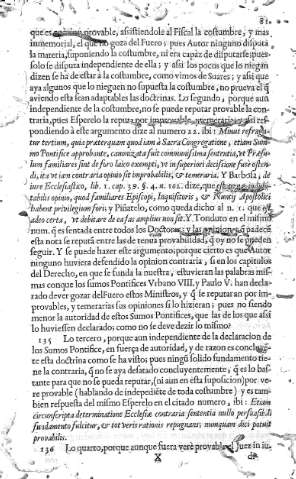 81.
que es opinion provable, assistiendole al Fiscal la costumbre, y mas
inmemorial, el que no goza del Fuero; pues Autor ninguno disputa
la materia, suponiendo la costumbre, ni era capàz de disputarse, pues
solo se disputa independiente de ella; y assi los pocos que lo niegan
dizen se ha de estàr à la costumbre, como vimos de Suares; y assi que
aya algunos que lo nieguen no supuesta la costumbre, no prueva el q
aviendo esta sean adaptables las doctrinas. Lo segundo, porque aun
independiente de la costumbre, no se puede reputar provable la con-
traria, pues Esperelo la reputa por improvable, y temeraria; y assi res-
pondiendo à este argumento dize al numero 22. ibi: Minut refraga-
tur tertium, quia præterquam quod iam à Sacra Congregatione, etiam Sum-
mo Pontifice approbante, canonizata fuit communissima sententia, ut Præsu-
lum familiares sint de foro laico exempti, ut in superiori decisione fuse osten-
di, ita ut iam contraria opinio sit improbabilis, & temeraria. Y Barbosa, de
iure Ecclesiastico, lib. 1. cap. 39. §. 4. n. 162. dize, que
bitabilis opinio, quod familiares Episcopi, Inquisitoris, & Nuncij Apostolici
habent privilegium fori; y Piñatelo, como queda dicho al n. 1. que es
adeo certa, ut debitare de ea fas amplius non sit. Y Tonduto en el mismo
num. q es sentada entre todos los Doctores; y las opinion q padece
esta nota se reputa entre las de tenua provabilidad, q oy no se pueden
seguir. Y se puede hazer este argumento; porque cierto es que Autor
ninguno huviera defendido la opinion contraria, si en los capitulos
del Derecho, en que se funda la nuestra, estuvieran las palabras mis-
mas conque los sumos Pontifices Urbano VIII. y Paulo V. han decla-
rado devèr gozar del Fuero estos Ministros, y q se reputaran por im-
provables, y temerarias sus opiniones si lo hizieran; pues no siendo
menor la autoridad de estos Sumos Pontifices, que las de los que assi
lo huviessen declarado; como no se deve dezir lo mismo?
135 Lo tercero, porque aun independiente de la declaracion de
los Sumos Pontifices, en fuerça de autoridad, y de razon es concluyē-
te esta doctrina como se ha visto; pues ningū solido fundamento tie-
ne la contraria, q no se aya desatado concluyentemente, q es lo bas-
tante para que no se pueda reputar, (ni aun en esta suposicion) por ve-
re provable (hablando de independiēte de toda costumbre) y es tam-
bien respuesta del mismo Esperelo en el citado numero, ibi: Etiam
circumscripta determinatione Ecclesiæ contraria sententia nullo persuasibili
fundamento fulcitur, & tot veris rationis repugnat; nunquam dici potest
provabilis.
136 Lo quarto, porque aunque fuera verè provable el Juez in iu-
X
di-